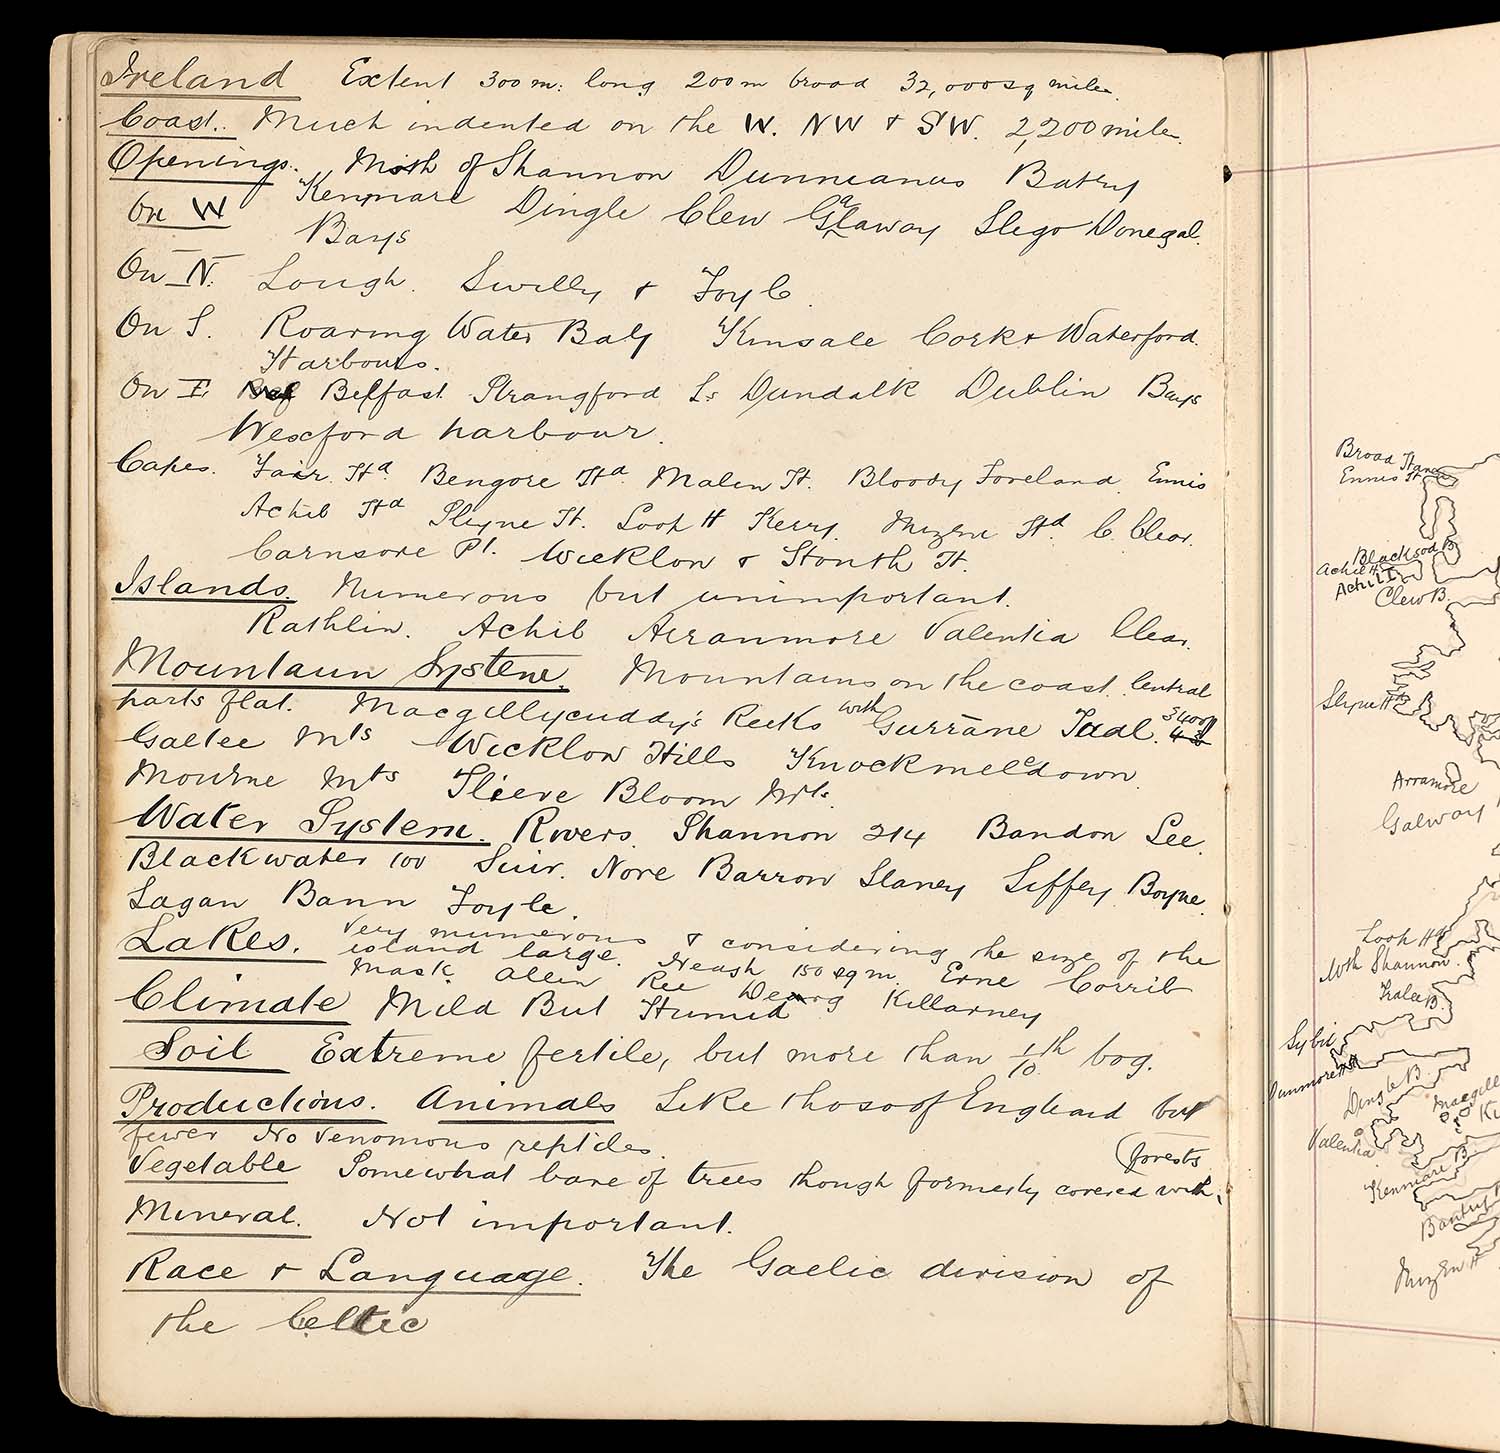 Ireland Extent 300 m. long 200 m broad 32,000 sq miles.
Coast. Much indented on the W. NW & SW. 2,200 miles.
Openings. Mth of Shannon Dunmanus Batry
On W Kenmare Dingle Clew Galaway Sligo Donegal.
Bays
On N. Lough. Swilly & Foyle.
On S. Roaring Water Bay Kinsale Cork & Waterford.
Harbours.
On E. Belfast Strangford Ls Dundalk Dublin Bays
Wexford harbour.
Capes. Fair Hd. Bengore Hd. Malin H. Bloody Foreland. Ennis
Achil Hd Slyne H. Loop H Kerry. Mizen Hd. C. Clear.
Carnsore Pt. Wicklow & Howth H.
Islands. Numerous but unimportant.
Rathlin. Achil Arranmore Valentia Clear.
Mountain System. Mountains on the coast. Central
parts flat. Macgillycuddy's Reeks with Gurrane Tual. 3400
Galtee Mts Wicklow Hills Knockmeledown
Mourne Mts Slieve Bloom Mts.
Water System. Rivers. Shannon 214 Bandon Lee.
Blackwater 100 Suir. Nore Barrow Slaney Liffey Boyne.
Lagan Bann Foyle.
Lakes. Very numerous & considering the size of the
island large. Neagh 150 sq m Erne Corrib
Mask Allen Ree Derg Killarney
Climate Mild But Humid
Soil Extreme fertile, but more than 1/10th bog.
Productions. Animals Like those of England but
fewer No venomous reptiles.
Vegetable Somewhat bare of trees though formerly covered with
forests
Mineral. Not important.
Race & Language. The Gaelic division of
the Celtic
Broad Haven
Ennis H
Blacksod B
Achil H
Achil I
Clew B.
Slyne Hd
Arramore
Galway
Loop Hd
Mth Shannon.
Tralee B.
Sybil
Dunmore H
Dingle B.
Macgill
Valentia
Kenmare B.
Bantry
Mizen H